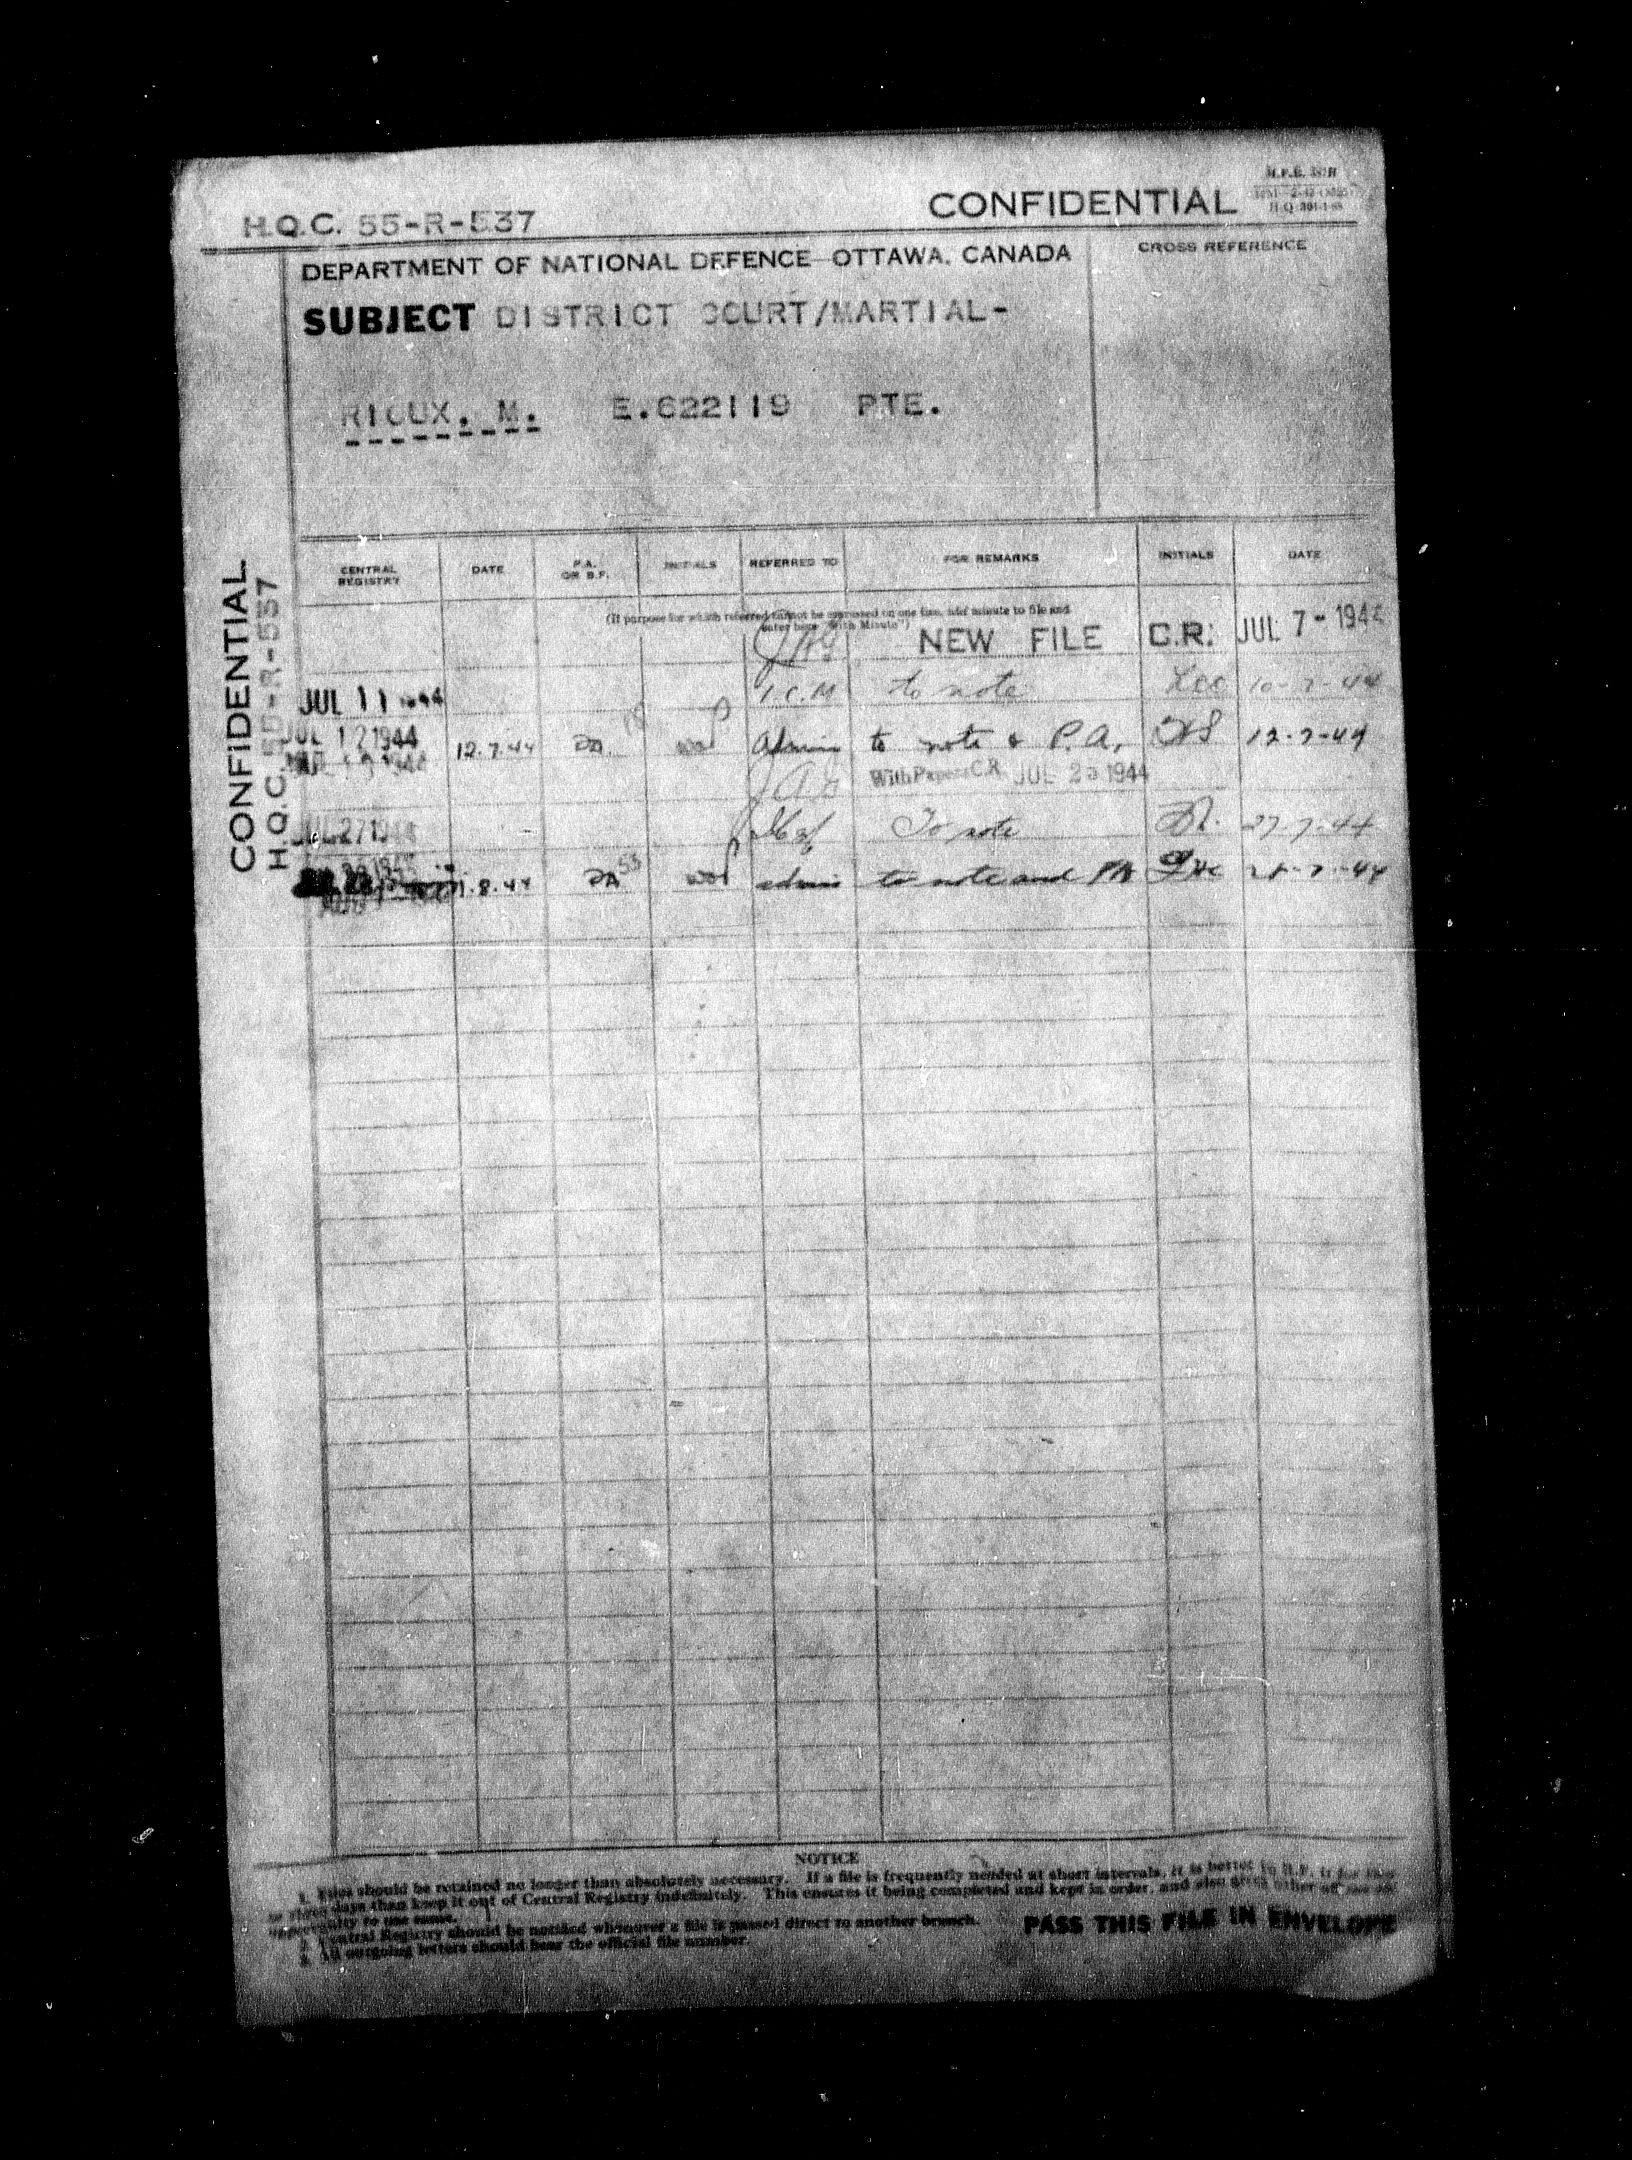 H.Q.C. 55-R-537
CONFIDENTIAL
DEPARTMENT OF NATIONAL DEFENCE OTTAWA, CANADA
CROSS REFERENCE
SUBJECT DISTRICT COURT/MARTIAL-
RIOUX, M. E.622119 PTE.
CONFIDENTIAL
H.Q.C. 55-R-537
CENTRAL REGISTRY DATE P.A. OR B.F. INITIALS REFERRED TO FOR REMARKS INITIALS DATE
(If purpose for which referred cannot be expressed on one line, add minute to file and
enter here "With Minute")
JAG NEW FILE C.R. JUL 7- 1944
JUL 11 1944 to note 10-7-44
JUL 12 1944 12.7.44 PA Admin to note & P.A. 12-7-44
JAG With Papers C.R. JUL 1944
JUL 27 1944 To note 27.7.44
1.8.44 PA admin to note and PA
NOTICE
1. Files should be retained no longer than absolutely necessary. If a file is frequently needed at short intervals, it is better to B.F. it for two
or three days than keep it out of Central Registry indefinitely. This ensures it being completed and kept in order, and also gives other
opportunity to use same.
2. Central Registry should be notified whenever a file is passed direct to another branch.
3. All outgoing letters should bear the official file number.
PASS THIS FILE IN ENVELOPE